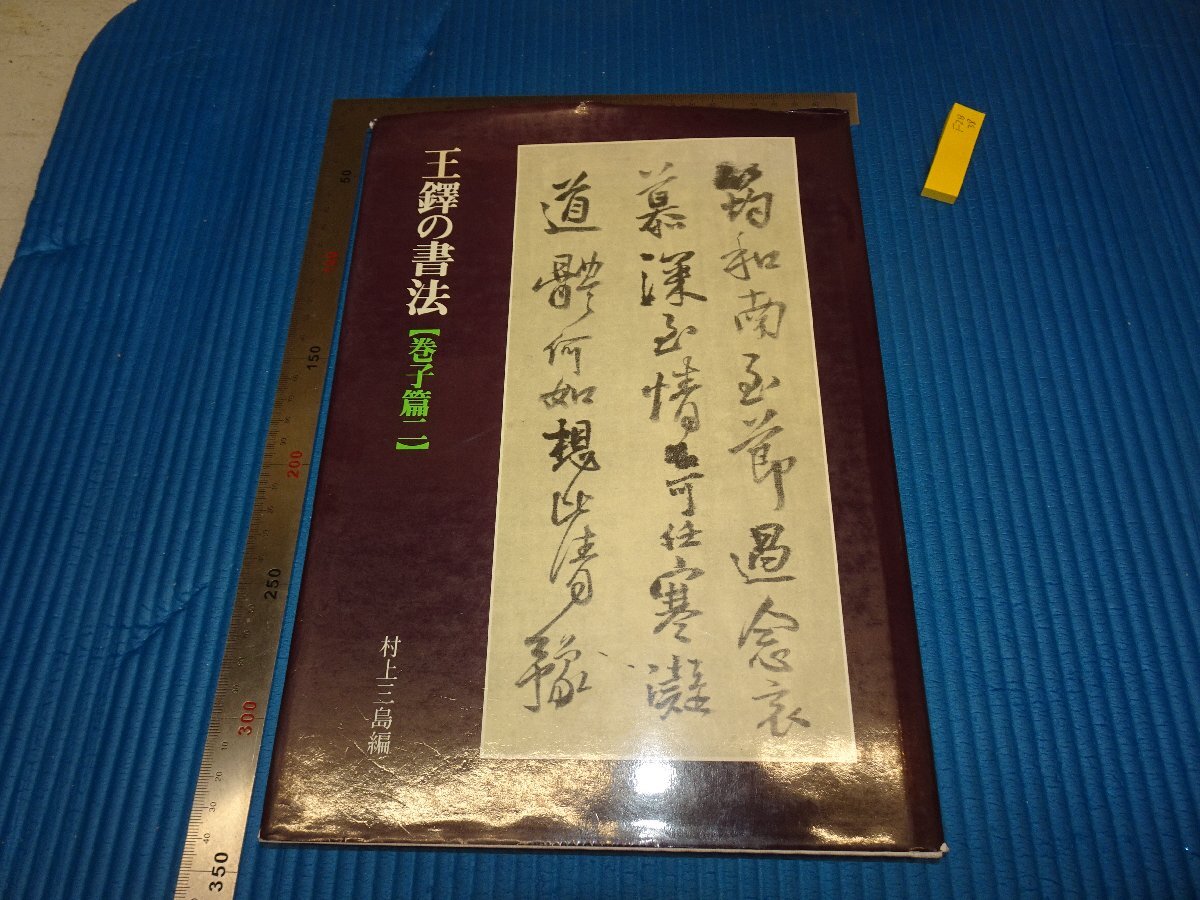 王鐸の書法
【巻子篇二】
村上三島編
筠和南至節過念哀
慕深至情不可任寒凝
道體何如想比清豫
50
150
200
250
300
350